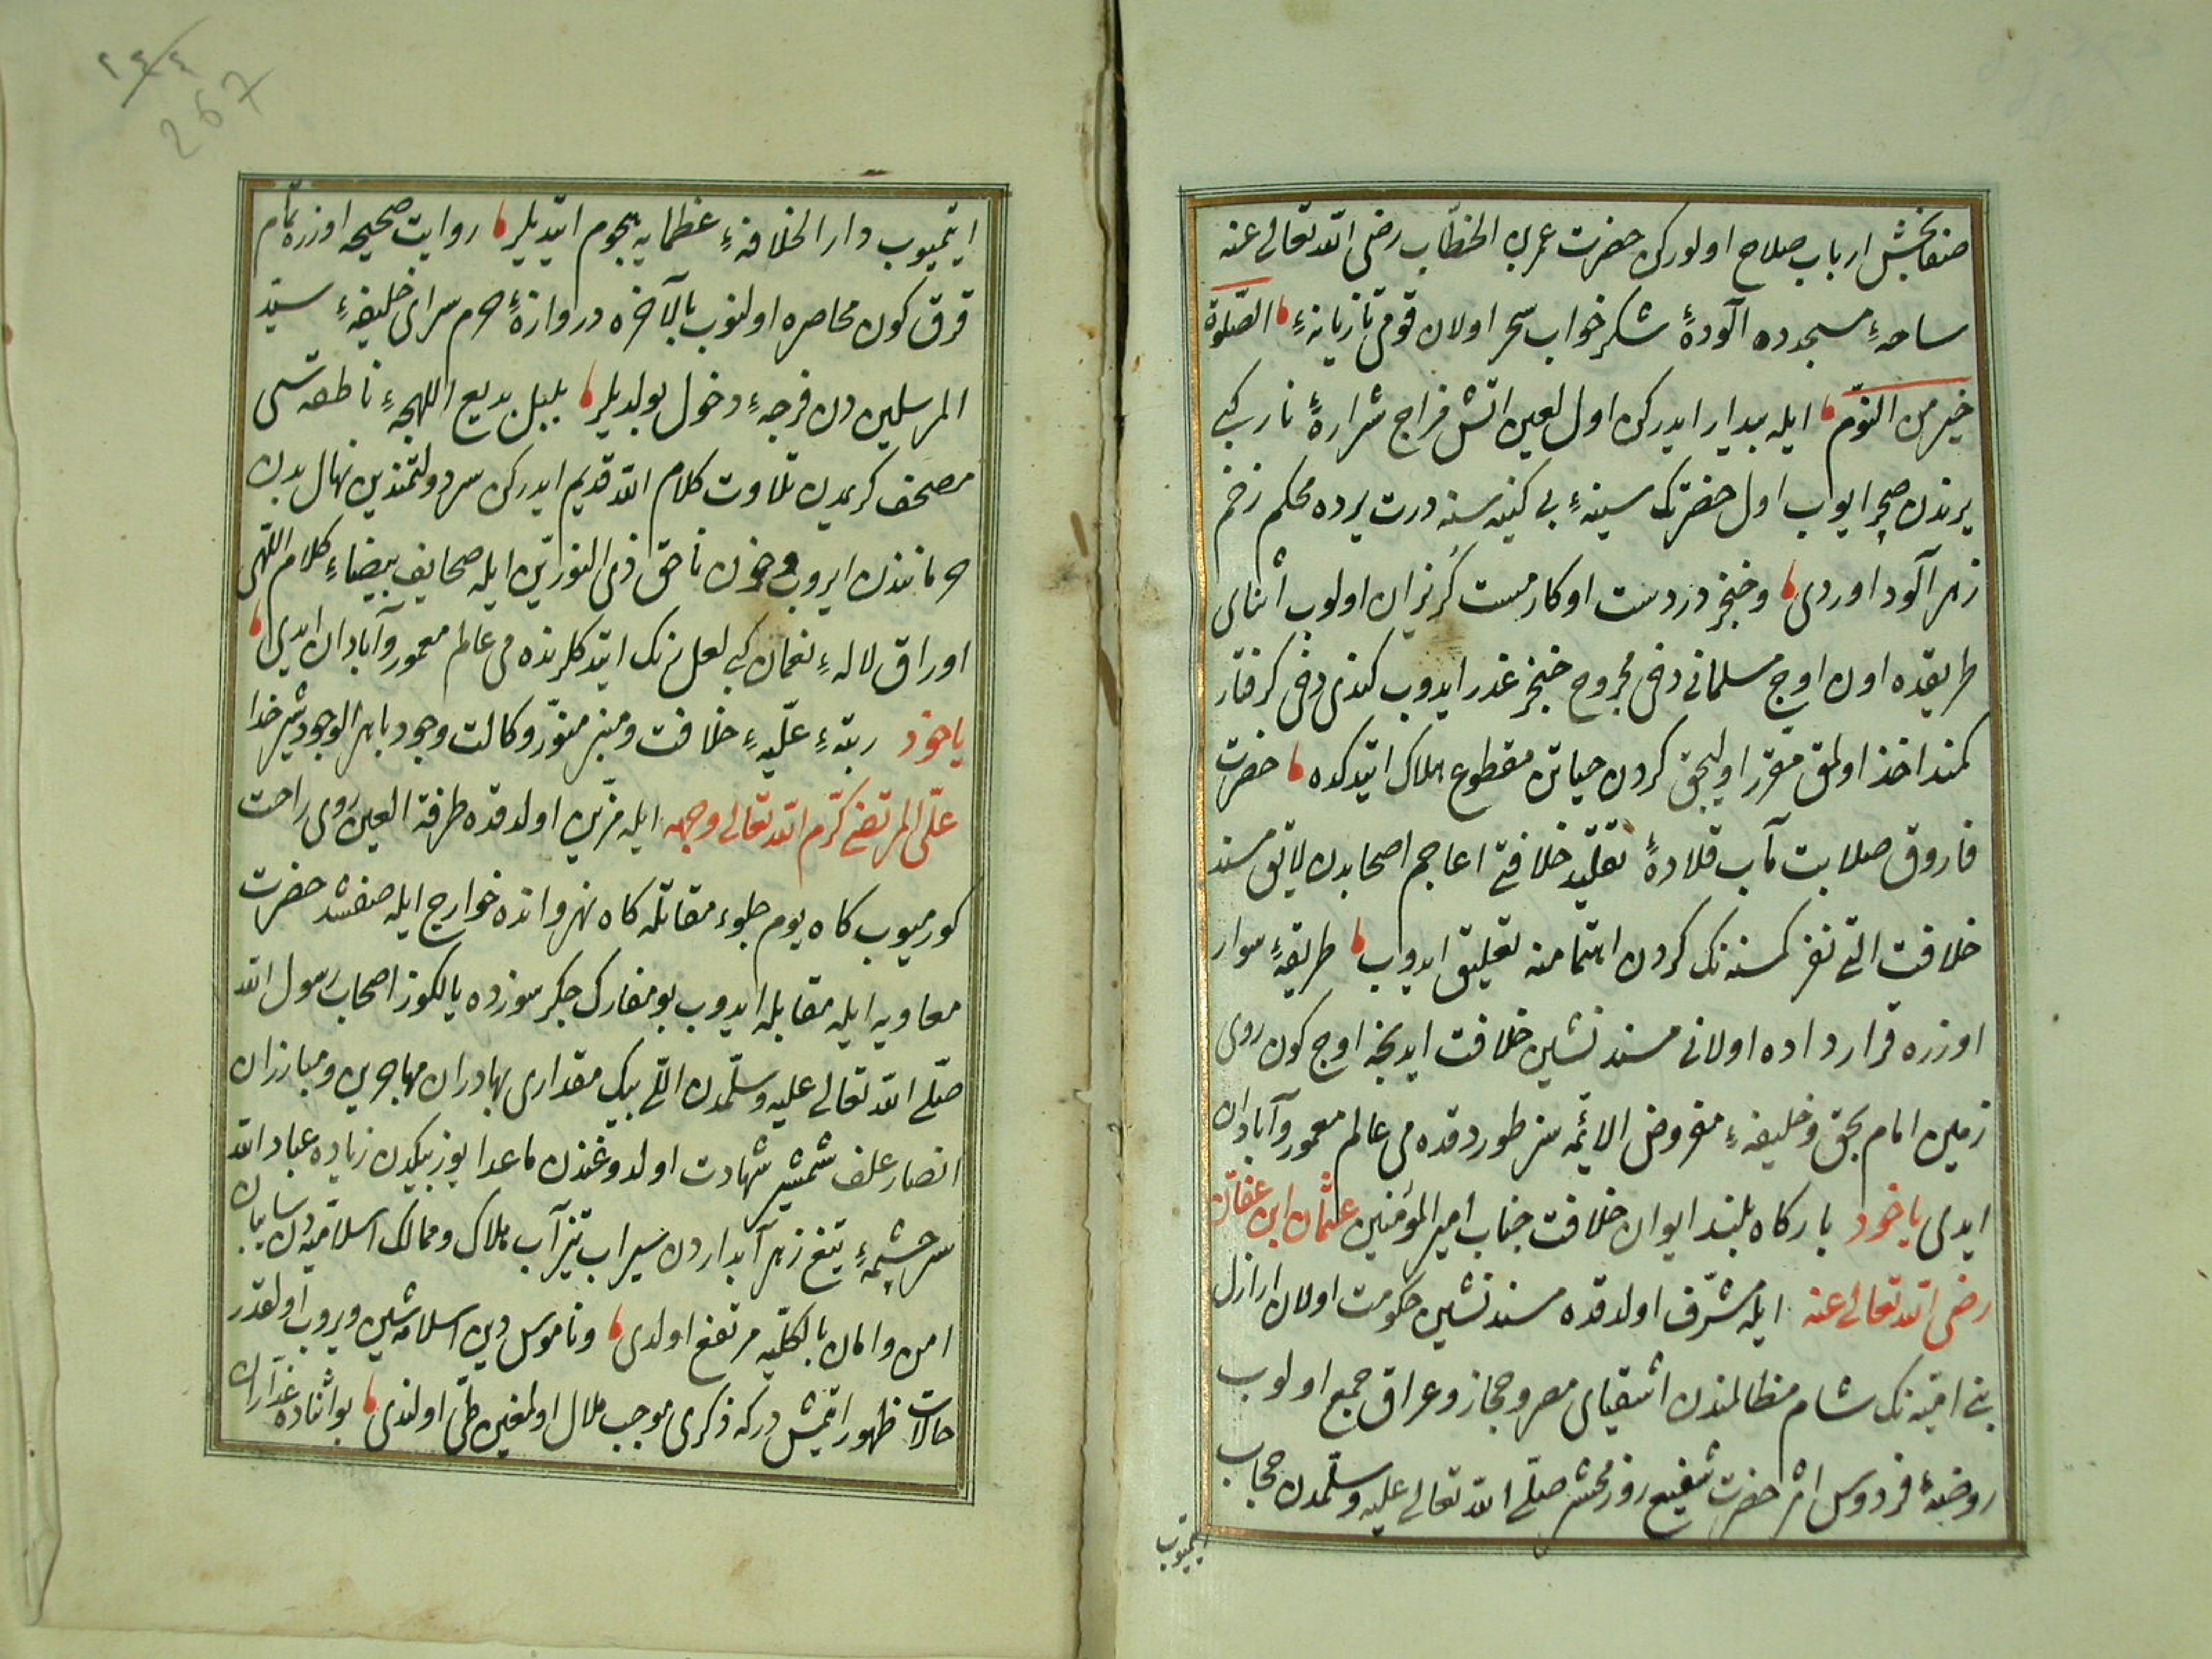 صفابخش ارباب صلاح اولوركن حضرت عمر بن الخطّاب رضى الله تعالى عنه
ساحهٔ مسجدده آلودهٔ شكرخواب سحر اولان قومى تازيانهٔ الصّلوة
خير من النّوم ايله بيدار ايدركن اول لعين اتش مزاج شرارهٔ نار كبى
يرندن صچرايوب اول حضرتك سينهٔ بى كينه سنه درت يرده محكم زخم
زهرآلود اوردى وخنجر دردست اوكار مست كريزان اولوب اثناى
طريقده اون اوچ مسلمانى دخى مجروح خنجر غدر ايدوب كندى دخى كرفتار
كمند اخذ اولمق مقرر اوليجق كردن حياتن مقطوع هلاك ايتدكده حضرت
فاروق صلابت مآب قلادهٔ تقليد خلافتى اعاجم اصحابدن لايق مسند
خلافت التى نفر كمسنه نك كردن اهتمامنه تعليق ايدوب طريقهٔ سوار
اوزره قرارداده اولانى مسندنشين خلافت ايدنجه اوچ كون روى
زمين امام بحق وخليفهٔ مفروض الائمه سز طوردقده مى عالم معمور وآبادان
ايدى ياخود باركاه بلند ايوان خلافت جناب امير المؤمنين عثمان ابن عفان
رضى الله تعالى عنه ايله مشرّف اولدقده مسندنشين حكومت اولان اراذل
بنى اميّه نك شام مظالمندن اشقياى مصر وحجاز وعراق جمع اولوب
روضهٔ فردوس اثر حضرت شفيع روز محشر صلّى الله تعالى عليه وسلّمدن حجاب
ايتميوب
ايتميوب دار الخلافهٔ عظمايه هجوم ايتديلر روايت صحيحه اوزره تمام
قرق كون محاصره اولنوب بالآخره دروازهٔ حرم سراى خليفهٔ سيّد
المرسلين دن فرجهٔ دخول بولديلر بلبل بديع اللهجهٔ ناطقه سى
مصحف كريمدن تلاوت كلام الله قديم ايدركن سر دولتمندين نهال بدن
حرمانندن ايروب وخون ناحق ذى النورين ايله صحايف بيضاء كلام اللّهى
اوراق لالهٔ نعمان كبى لعل رنك ايتدكلرنده مى عالم معمور وآبادان ايدى
ياخود رتبهٔ عليّهٔ خلافت ومنبر منوّر وكالت وجود باهر الوجود شير خدا
علىّ المرتضى كرّم الله تعالى وجهه ايله مزيّن اولدقده طرفة العين روى راحت
كورميوب كاه يوم جلوء مقاتله كاه نهروانده خوارج ايله صفشد حضرت
معاويه ايله مقابله ايدوب بو معارك جكرسوزده يالكوز اصحاب رسول الله
صلّى الله تعالى عليه وسلّمدن التى بيك مقدارى بهادران مهاجرين ومبارزان
انصار علف شمشير شهادت اولدوغندن ماعدا يوز بيكدن زياده عباد الله
سرچشمهٔ تيغ زهر آبداردن سيراب تيزآب هلاك وممالك اسلاميّه دن سايبان
امن وامان بالكليّه مرتفع اولدى وناموس دين اسلامه شين ويروب اولقدر
حالات ظهور ايتمش دركه ذكرى موجب ملال اولمغين طىّ اولندى بو اثناده غدّاران
٢٤٤
267